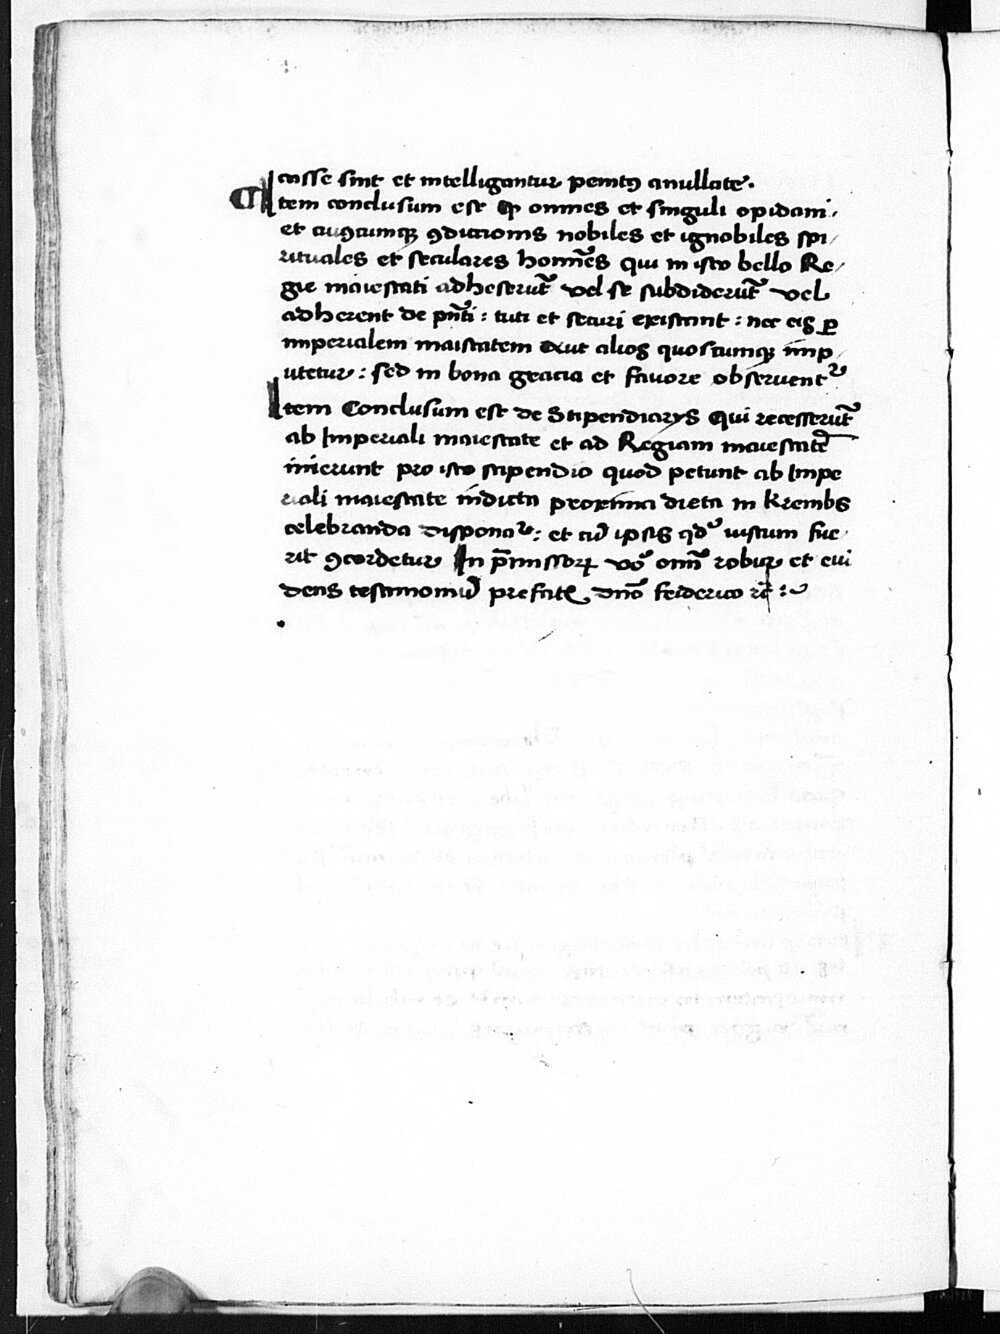 casse sint et intelligantur penitꝰ anullate.
¶ Item conclusum est ꝙ omnes et singuli opidani,
et cuiuscumqꝫ ꝯdicionis nobiles et ignobiles spi/
rituales et seculares hoi̅es qui in isto bello Re/
gie maiestati adheserūt vel se subdiderūt vel
adherent de pn̄ti: tuti et securi existant: nec eis ꝑ
imperialem maiestatem aut alios quoscumqꝫ imp/
utetur: sed in bona gracia et fauore obseruentᷣ
Item Conclusum est de Stipendiarys Qui recesserūt
ab Imperiali maiestate et ad Regiam maiestatē
inierunt pro isto stipendio quod petunt ab Impe
riali maiestate indicta proxima dieta in krembs
celebranda disponatᷣ: et cū ipsis qd' iustum fue
rit ꝯcordetur In p̄missorꝝ v̄o omī robur et eui
dens testimoniū prefat dn̄o feiderico re :~